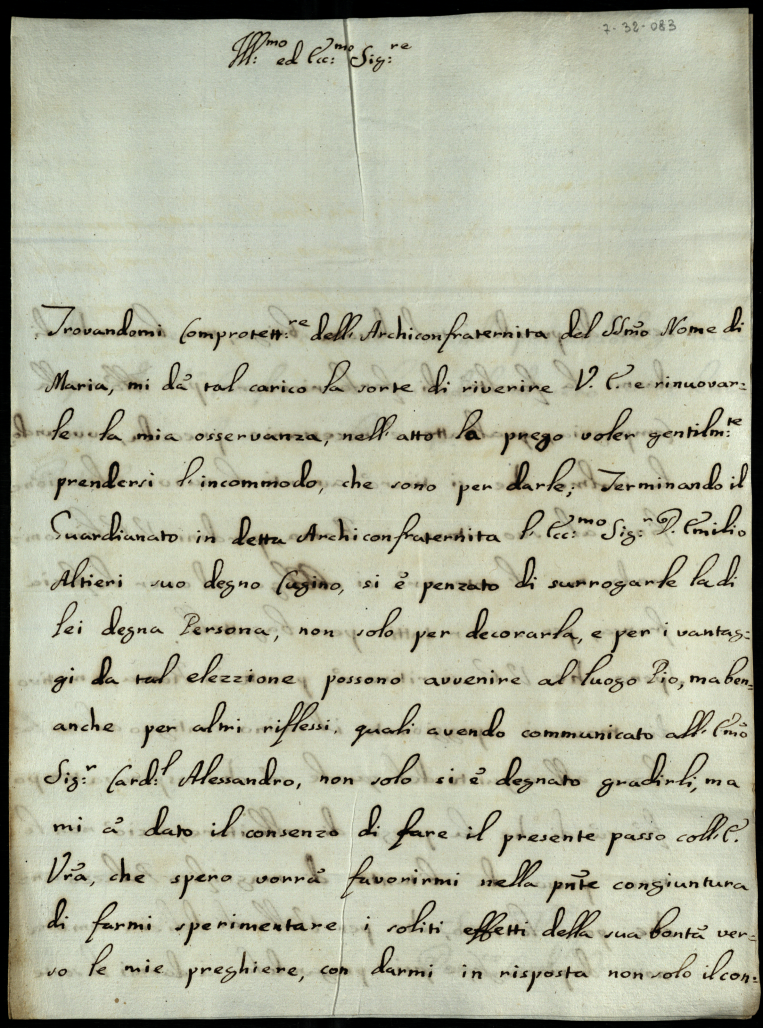 7-32-083
Ill:mo ed Ecc:mo Sig:re
Trovandomi Comprotett:re dell'Archiconfraternita del SSmo Nome di
Maria, mi dà tal carico la sorte di riverire V. E. e rinuovar=
le la mia osservanza, nell'atto la prego voler gentilm:te
prendersi l'incommodo, che sono per darle; Terminando il
Guardianato in detta Archiconfraternita l'Ecc:mo Sig:r D. Emilio
Altieri suo degno Cugino, si è penzato di surrogarle la di
lei degna Persona, non solo per decorarla, e per i vantag=
gi da tal elezzione possono avvenire al luogo Pio, ma ben=
anche per altri riflessi, quali avendo communicato all'Emo
Sig:r Card:l Alessandro, non solo si è degnato gradirli, ma
mi à dato il consenzo di fare il presente passo coll'E.
Vra, che spero vorrà favorirmi nella pnte congiuntura
di farmi sperimentare i soliti effetti della sua bontà ver=
so le mie preghiere, con darmi in risposta non solo il con=